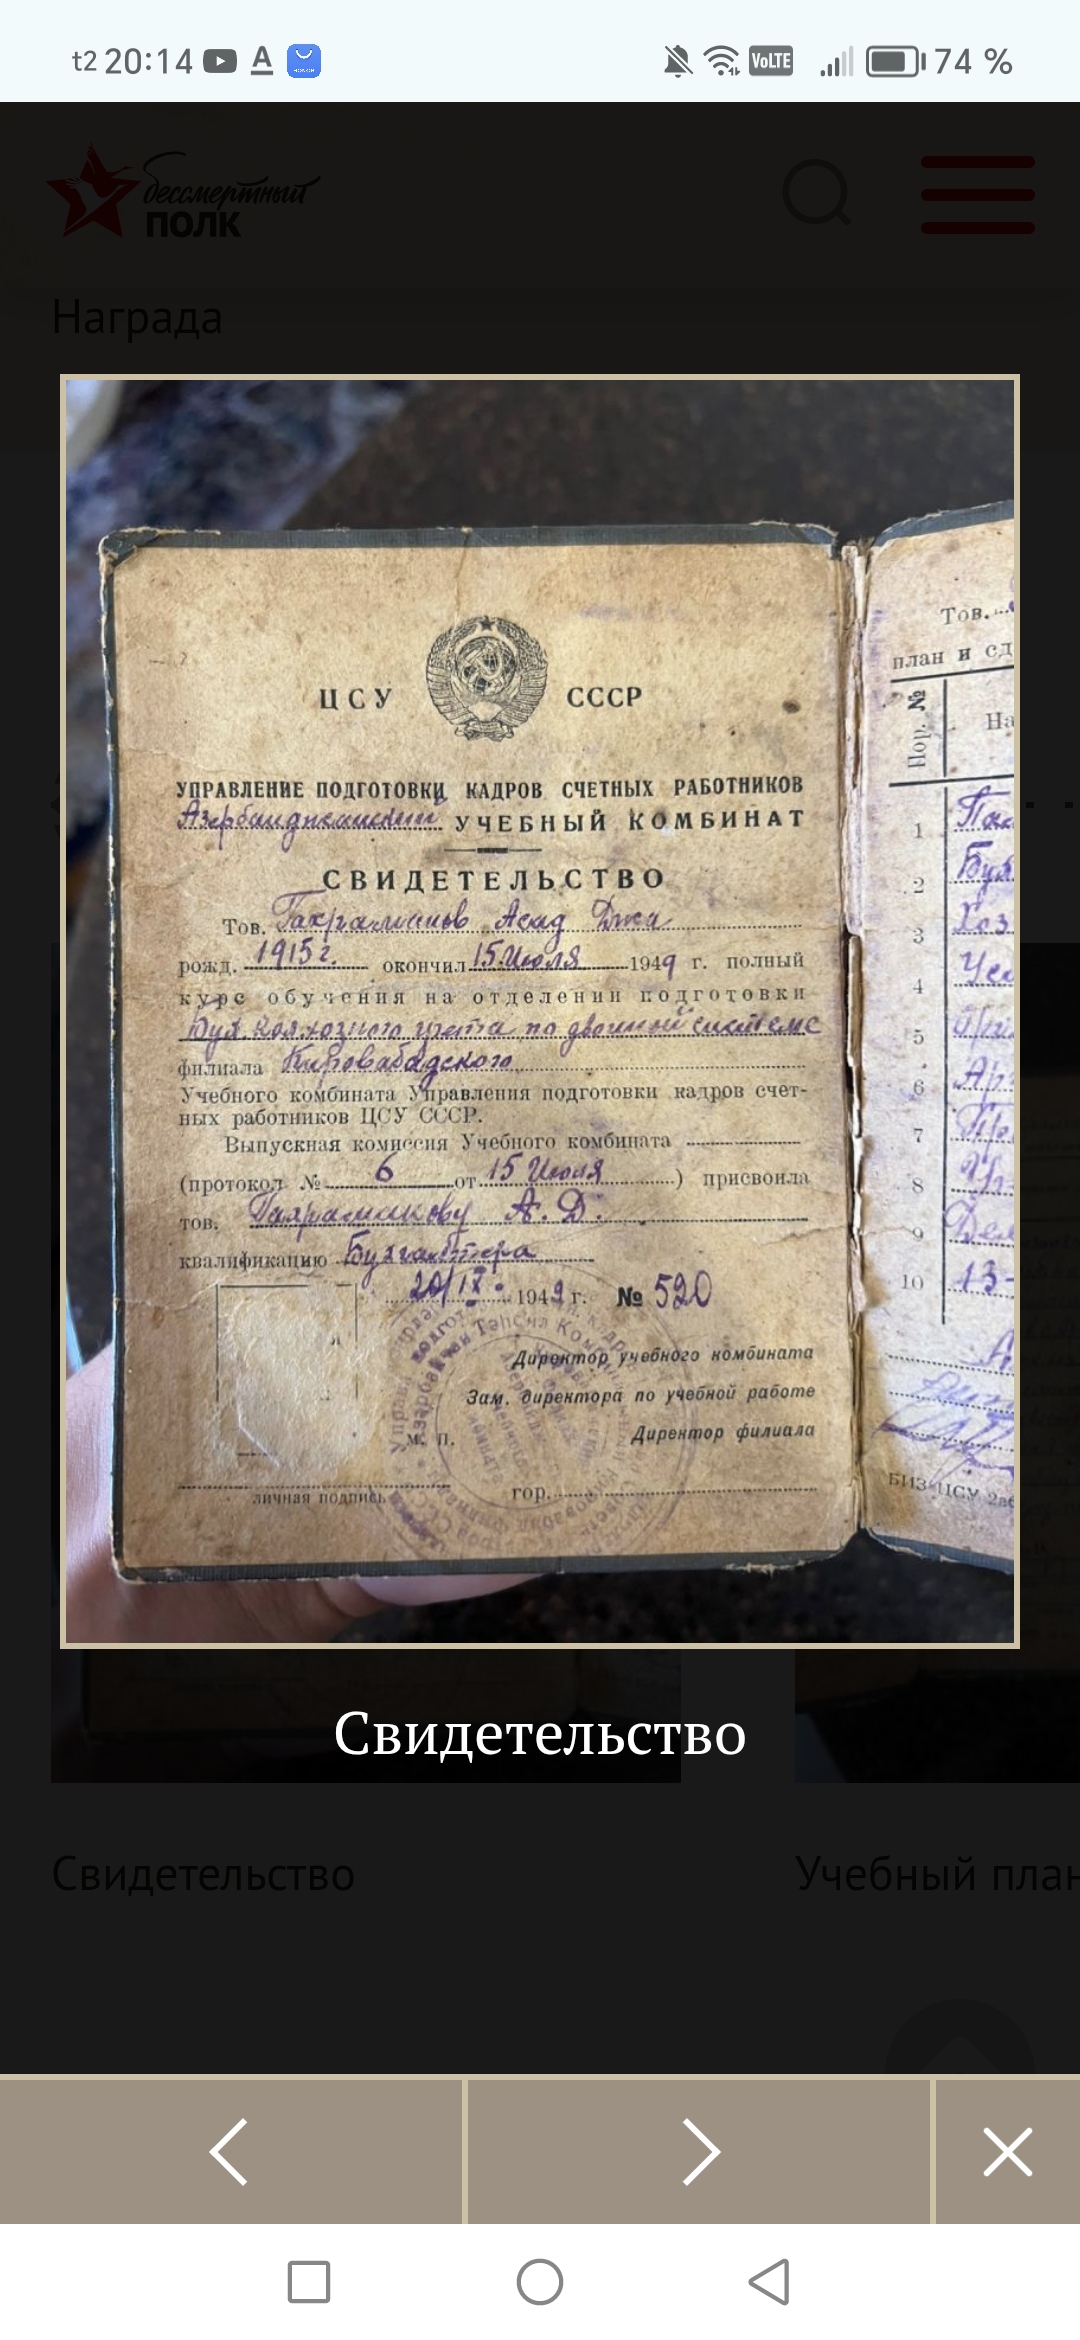 t2 20:14 A VoLTE 74 %
бессмертный
ПОЛК
Награда
ЦСУ СССР
УПРАВЛЕНИЕ ПОДГОТОВКИ КАДРОВ СЧЕТНЫХ РАБОТНИКОВ
Азербайджанский УЧЕБНЫЙ КОМБИНАТ
СВИДЕТЕЛЬСТВО
Тов. Гахраманов Асад
рожд. 1915 г. окончил 15 Июля 1949 г. полный
курс обучения на отделении подготовки
Бух. колхозного учета по двойной системе
филиала Кировабадского
Учебного комбината Управления подготовки кадров счет-
ных работников ЦСУ СССР.
Выпускная комиссия Учебного комбината
(протокол № 6 от 15 Июля ) присвоила
тов. Гахраманову А. Д.
квалификацию Бухгалтера
20/IX 1949 г. № 520
Директор учебного комбината
Зам. директора по учебной работе
М. П. Директор филиала
личная подпись гор.
Тов.
план и сд
Пор. № На
1
2
3 Хоз
4
5
6
7
8
9
10 13-
БИЗ ЦСУ
Свидетельство
Свидетельство Учебный план